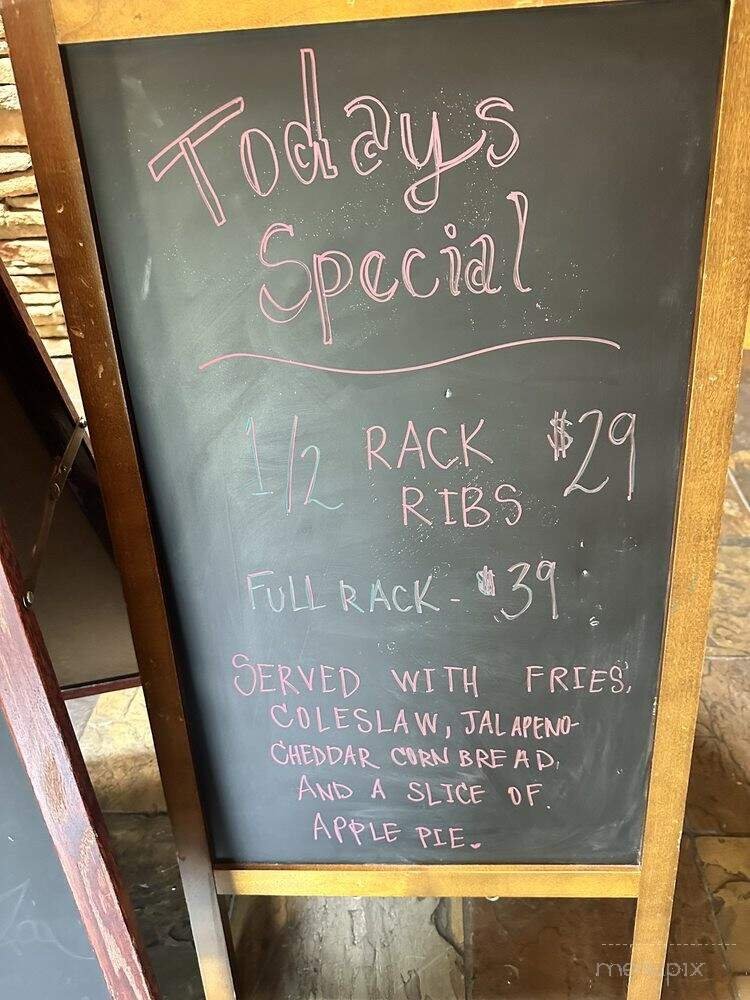 Todays
Special
1/2 RACK $29
RIBS
FULL RACK - $39
SERVED WITH FRIES,
COLESLAW, JALAPENO-
CHEDDAR CORN BREAD,
AND A SLICE OF
APPLE PIE.